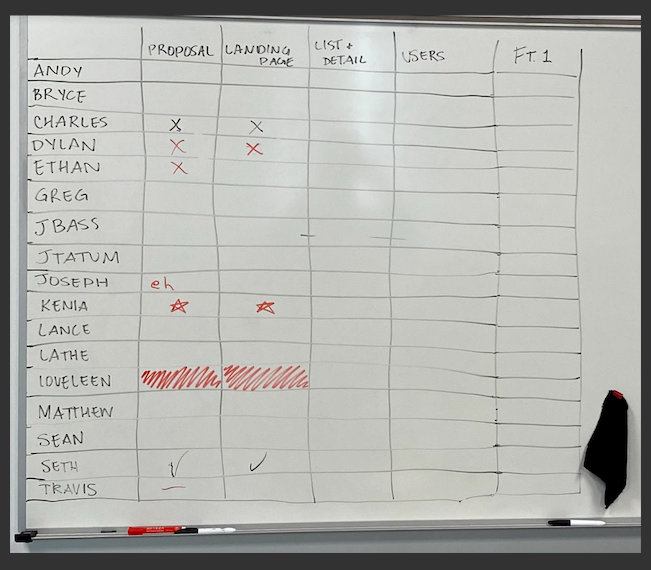 PROPOSAL LANDING PAGE LIST + DETAIL USERS FT. 1
ANDY
BRYCE
CHARLES X X
DYLAN X X
ETHAN X
GREG
JBASS
JTATUM
JOSEPH eh
KENIA
LANCE
LATHE
LOVELEEN
MATTHEW
SEAN
SETH ✓ ✓
TRAVIS —